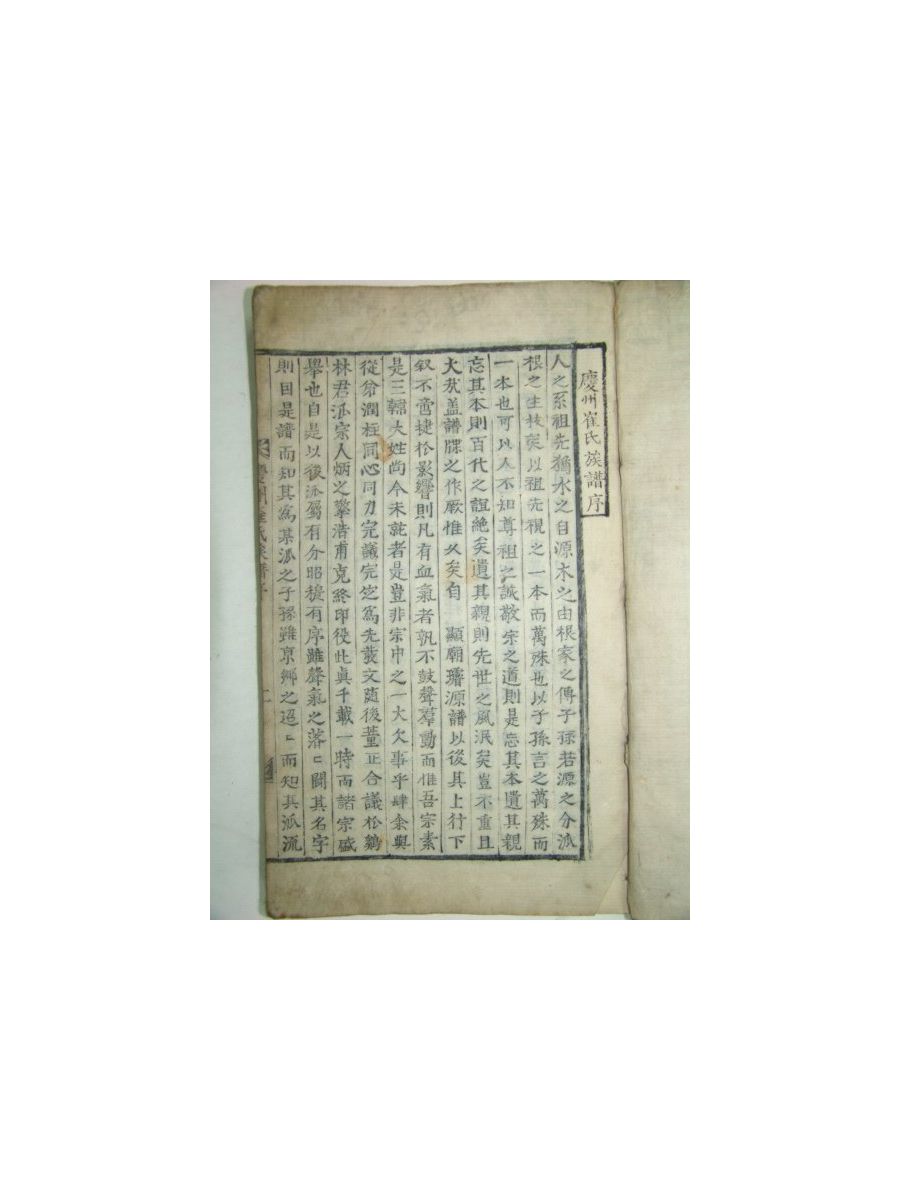 慶州崔氏族譜序
人之系祖先猶水之自源木之由根家之傳子孫若源之分派
根之生枝矣以祖先視之一本而萬殊也以子孫言之萬殊而
一本也可以人不知尊祖之誠敬宗之道則是忘其本遺其親
忘其本則百代之誼絶矣遺其親則先世之風泯矣豈不重且
大哉盖譜牒之作厥惟久矣自 顯廟璿源譜以後其上行下
效不啻捷於影響則凡有血氣者孰不鼓聲羣動而惟吾宗素
是三韓大姓尙今未就者是豈非宗中之一大欠事乎肆余與
從爺潤柱同心同力完議完定爲先發文隨後董正合議於鷄
林君派宗人炳之擎浩甫克終印役此眞千載一時而諸宗盛
擧也自是以後派屬有分昭穆有序雖聲氣之落〻闘其名字
則因是譜而知其爲某派之子孫雖京鄉之迢〻而知其派流
慶州崔氏族譜序
一